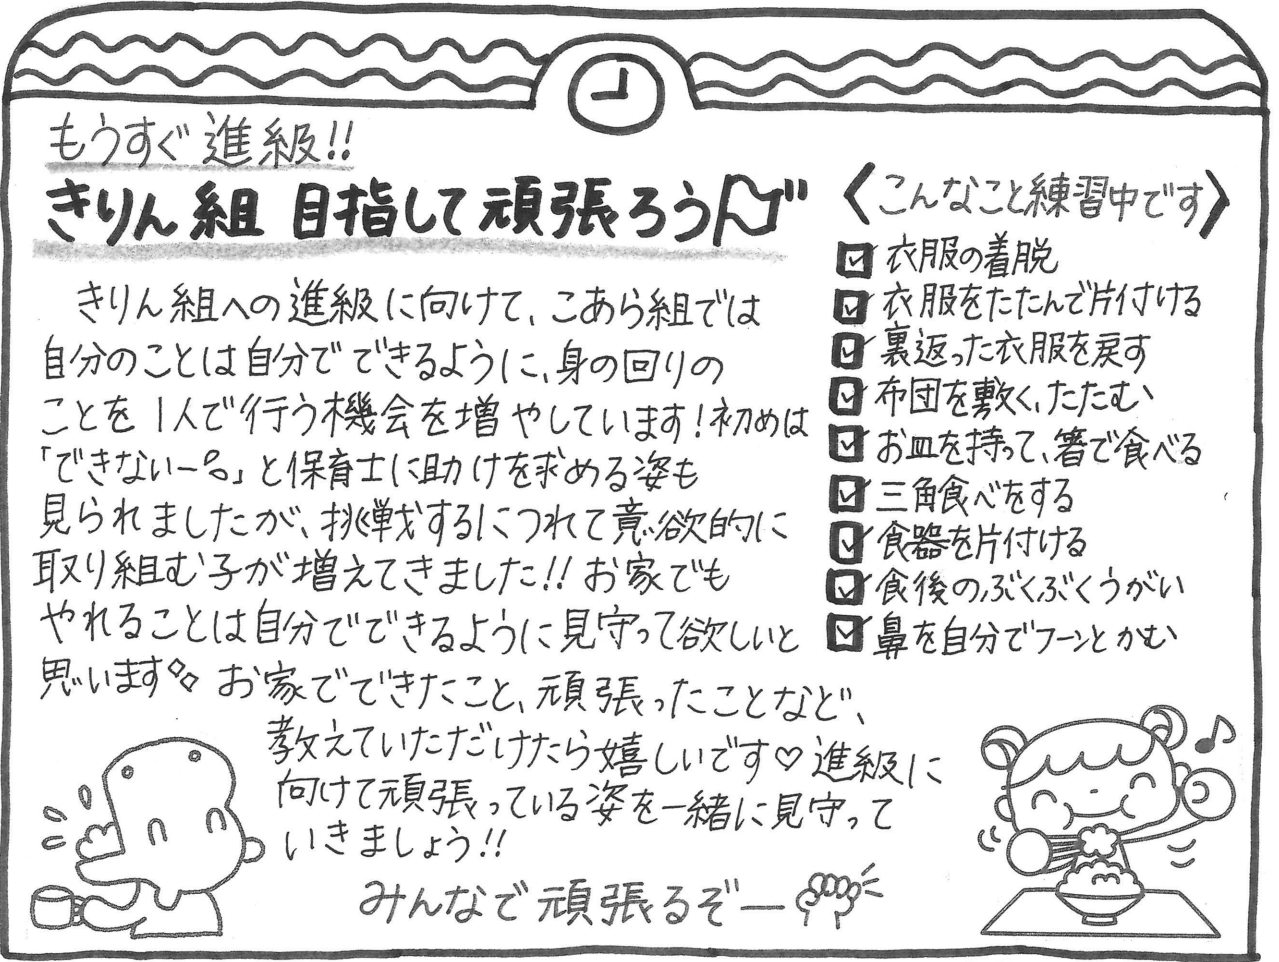 もうすぐ進級!!
きりん組 目指して頑張ろう
きりん組への進級に向けて、こあら組では
自分のことは自分でできるように、身の回りの
ことを1人で行う機会を増やしています!初めは
「できないー。」と保育士に助けを求める姿も
見られましたが、挑戦するにつれて意欲的に
取り組む子が増えてきました!!お家でも
やれることは自分でできるように見守って欲しいと
思います お家でできたこと、頑張ったことなど、
教えていただけたら嬉しいです♡進級に
向けて頑張っている姿を一緒に見守って
いきましょう!!
みんなで頑張るぞー
〈こんなこと練習中です〉
☑衣服の着脱
☑衣服をたたんで片付ける
☑裏返った衣服を戻す
☑布団を敷く、たたむ
☑お皿を持って、箸で食べる
☑三角食べをする
☑食器を片付ける
☑食後のぶくぶくうがい
☑鼻を自分でフーンとかむ